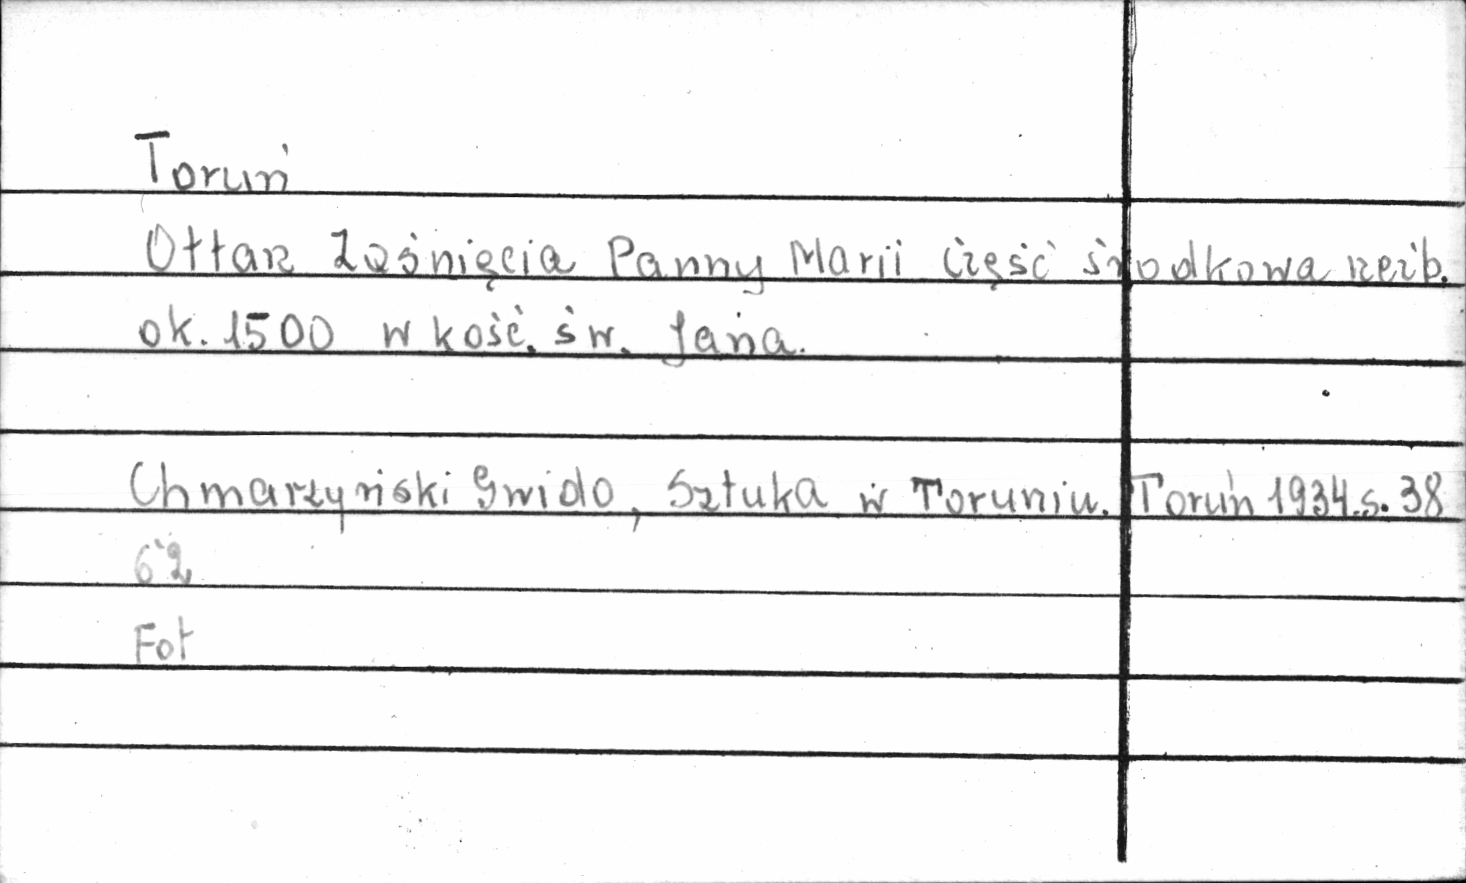 Toruń
Ołtarz Zaśnięcia Panny Marii część środkowa rzeźb.
ok. 1500 w kość. św. Jana.
Chmarzyński Gwido, Sztuka w Toruniu. Toruń 1934.s. 38
62
Fot